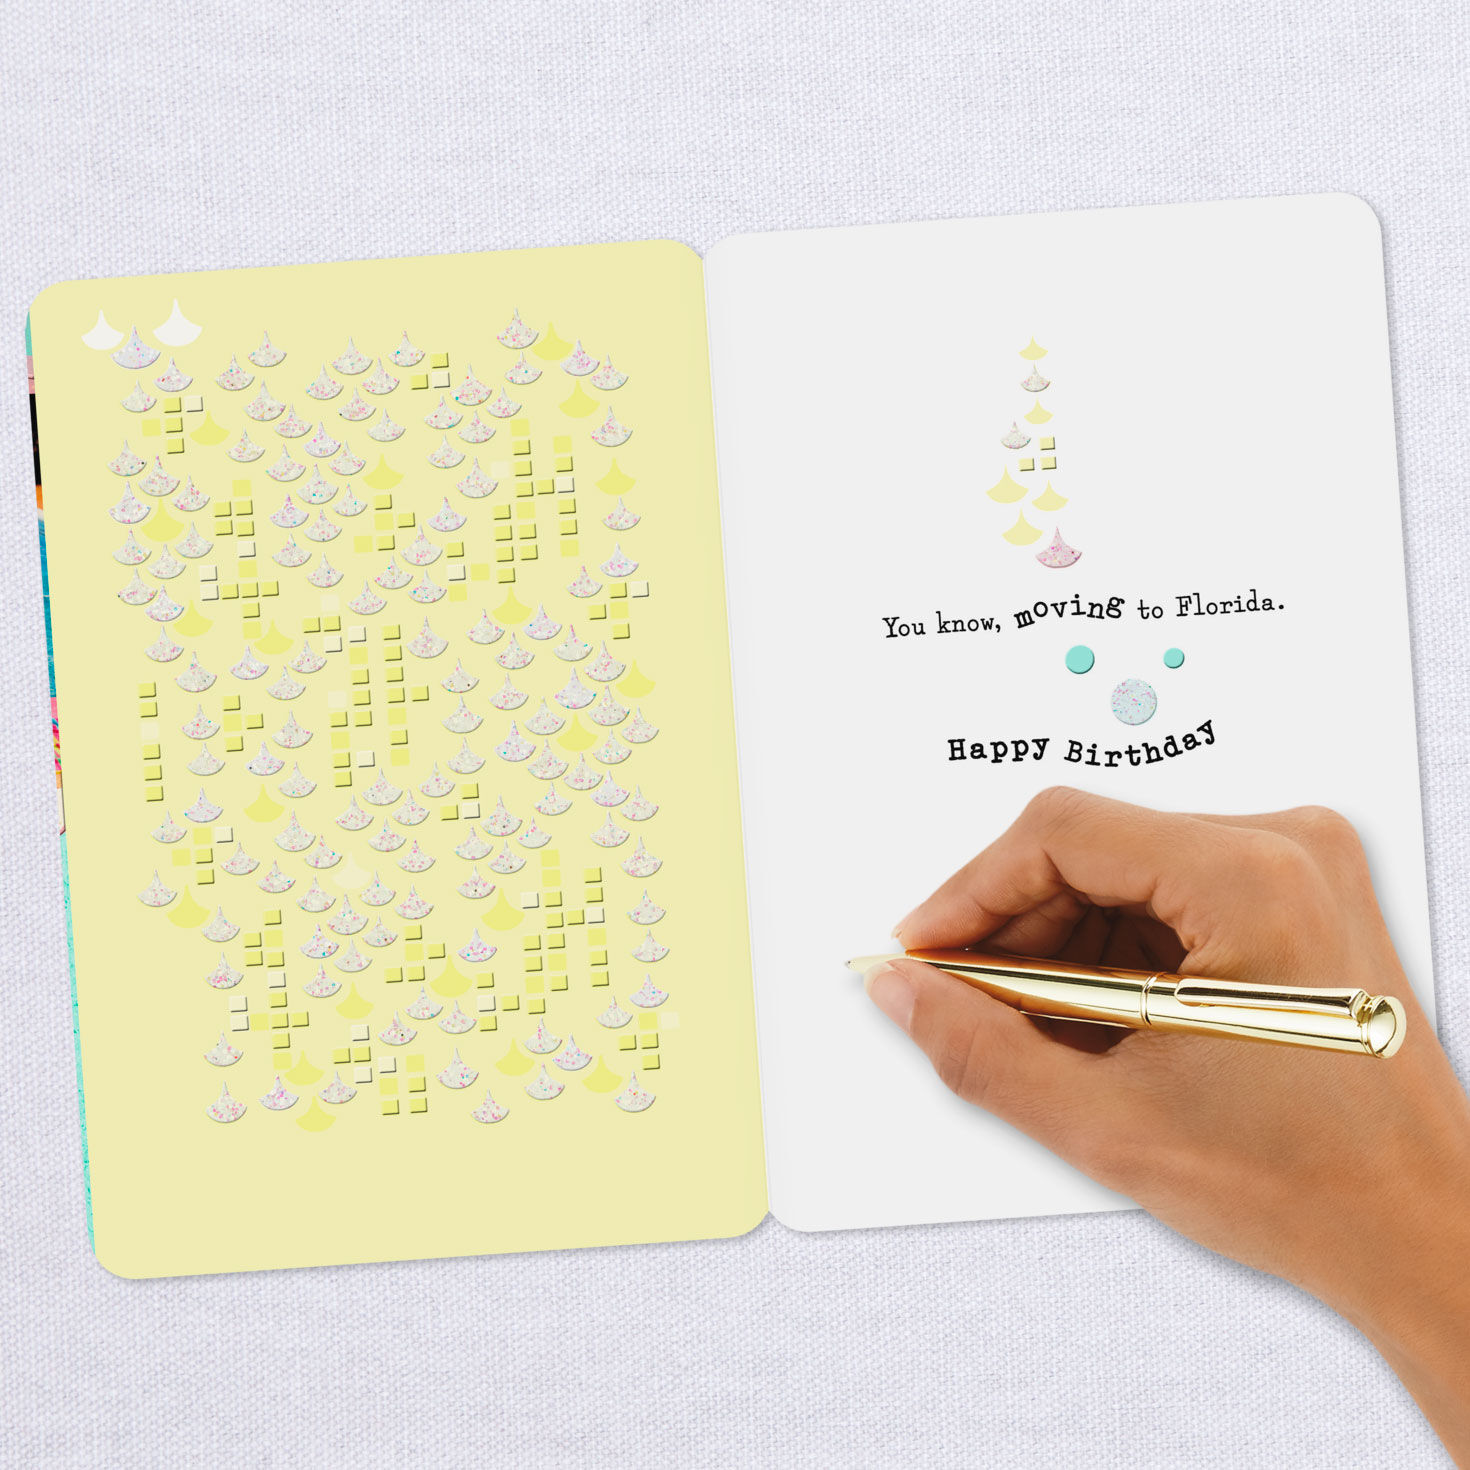 You know, moving to Florida.
Happy Birthday